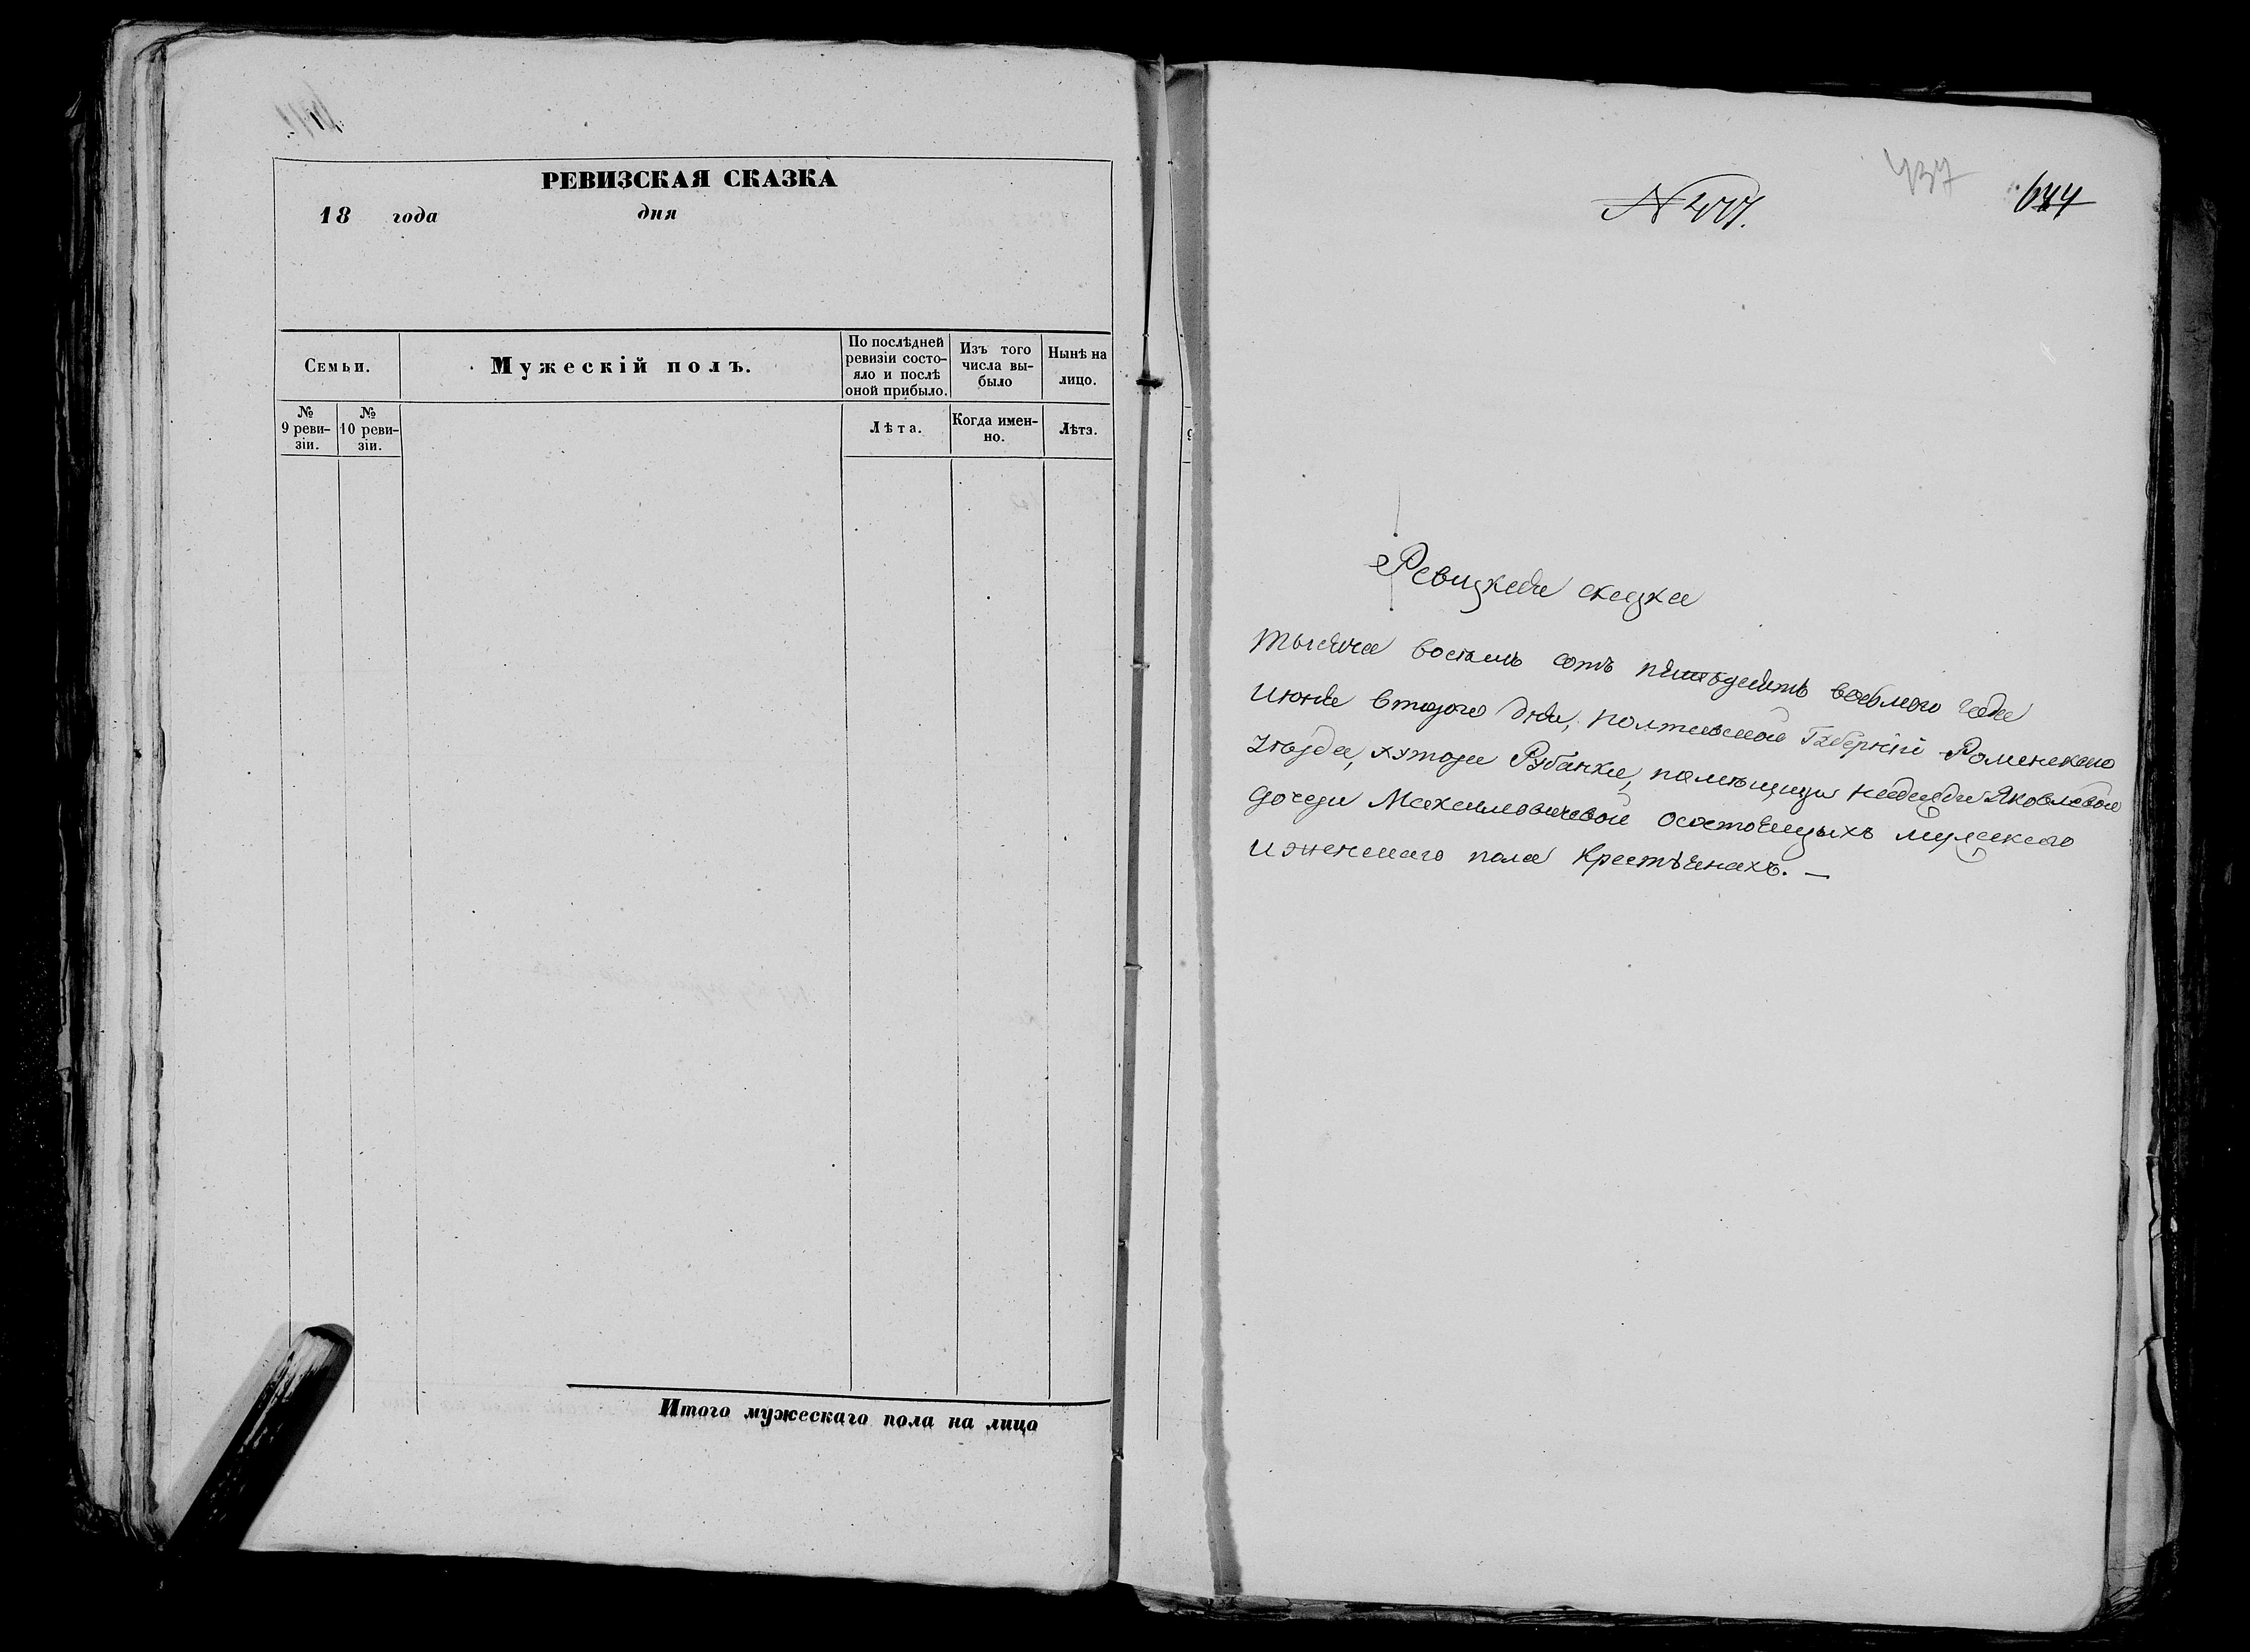 РЕВИЗСКАЯ СКАЗКА
18 года дня
Семьи.
Мужескій полъ.
По послѣдней ревизіи состо-яло и послѣ оной прибыло.
Изъ того числа вы-было
Нынѣ на лицо.
№ 9 реви-зіи.
№ 10 реви-зіи.
Лѣта.
Когда имен-но.
Лѣта.
Итого мужескаго пола на лицо
437
644
Ревизкая сказка
тысяча восемь сотъ пятьдесятъ восьмого года
июня второго дня, полтавской Губерніи Роменскаго
уѣзда, хутора Рубанки, помѣщицы надежды Яковлевой
дочери Максимовичевой осостоящыхъ мужескаго
и женскаго пола крестьянахъ. —